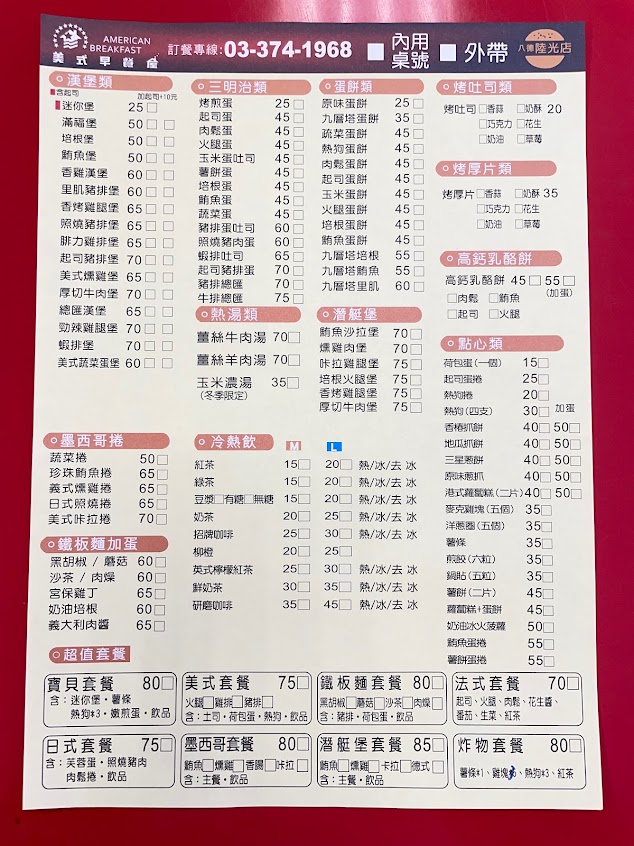 AMERICAN
BREAKFAST
美式早餐會
訂餐專線:03-374-1968
內用
桌號
外帶
八德陸光店
漢堡類
含起司 加起司+10元
迷你堡 25
滿福堡 50
培根堡 50
鮪魚堡 50
香雞漢堡 60
里肌豬排堡 60
香烤雞腿堡 65
照燒豬排堡 65
腓力雞排堡 65
起司豬排堡 70
美式燻雞堡 65
厚切牛肉堡 70
總匯漢堡 65
勁辣雞腿堡 70
蝦排堡 70
美式蔬菜蛋堡 60
三明治類
烤煎蛋 25
起司蛋 45
肉鬆蛋 45
火腿蛋 45
玉米蛋吐司 45
薯餅蛋 45
培根蛋 45
鮪魚蛋 45
蔬菜蛋 45
豬排蛋吐司 60
照燒豬肉蛋 60
蝦排吐司 65
起司豬排蛋 70
豬排總匯 70
牛排總匯 75
蛋餅類
原味蛋餅 25
九層塔蛋餅 35
蔬菜蛋餅 45
熱狗蛋餅 45
肉鬆蛋餅 45
起司蛋餅 45
玉米蛋餅 45
火腿蛋餅 45
培根蛋餅 45
鮪魚蛋餅 45
九層塔培根 55
九層塔鮪魚 55
九層塔里肌 60
烤吐司類
烤吐司 香蒜 奶酥 20
巧克力 花生
奶油 草莓
烤厚片類
烤厚片 香蒜 奶酥 35
巧克力 花生
奶油 草莓
高鈣乳酪餅
高鈣乳酪餅 45 55
(加蛋)
肉鬆 鮪魚
起司 火腿
熱湯類
薑絲牛肉湯 70
薑絲羊肉湯 70
玉米濃湯 35
(冬季限定)
潛艇堡
鮪魚沙拉堡 70
燻雞肉堡 70
咔拉雞腿堡 75
培根火腿堡 75
香烤雞腿堡 75
厚切牛肉堡 75
點心類
荷包蛋(一個) 15
起司蛋捲 25
熱狗捲 20
熱狗(四支) 30 加蛋
香椿抓餅 40 50
地瓜抓餅 40 50
三星蔥餅 40 50
原味蔥抓 40 50
港式蘿蔔糕(二片) 40 50
麥克雞塊(五個) 35
洋蔥圈(五個) 35
薯條 35
煎餃(六粒) 35
鍋貼(五粒) 35
薯餅(二片) 45
蘿蔔糕+蛋餅 45
奶油冰火菠蘿 50
鮪魚蛋捲 55
薯餅蛋捲 55
墨西哥捲
蔬菜捲 50
珍珠鮪魚捲 65
義式燻雞捲 65
日式照燒捲 65
美式咔拉捲 70
冷熱飲 M L
紅茶 15 20 熱/冰/去 冰
綠茶 15 20 熱/冰/去 冰
豆漿 有糖 無糖 15 20 熱/冰/去 冰
奶茶 20 25 熱/冰/去 冰
招牌咖啡 25 30 熱/冰/去 冰
柳橙 20 25
英式檸檬紅茶 25 30 熱/冰/去 冰
鮮奶茶 30 35 熱/冰/去 冰
研磨咖啡 35 45 熱/冰/去 冰
鐵板麵加蛋
黑胡椒 / 蘑菇 60
沙茶 / 肉燥 60
宮保雞丁 65
奶油培根 60
義大利肉醬 65
超值套餐
寶貝套餐 80
含：迷你堡·薯條
熱狗*3·嫩煎蛋·飲品
美式套餐 75
火腿 雞排 豬排
含：土司·荷包蛋·熱狗·飲品
鐵板麵套餐 80
黑胡椒 蘑菇 沙茶 肉燥
含：豬排·荷包蛋·飲品
法式套餐 70
起司、火腿、肉鬆、花生醬、
番茄、生菜、紅茶
日式套餐 75
含：芙蓉蛋·照燒豬肉
肉鬆捲·飲品
墨西哥套餐 80
鮪魚 燻雞 香腸 咔拉
含：主餐·飲品
潛艇堡套餐 85
鮪魚 燻雞 卡拉 德式
含：主餐·飲品
炸物套餐 80
薯條*1、雞塊 、熱狗*3、紅茶